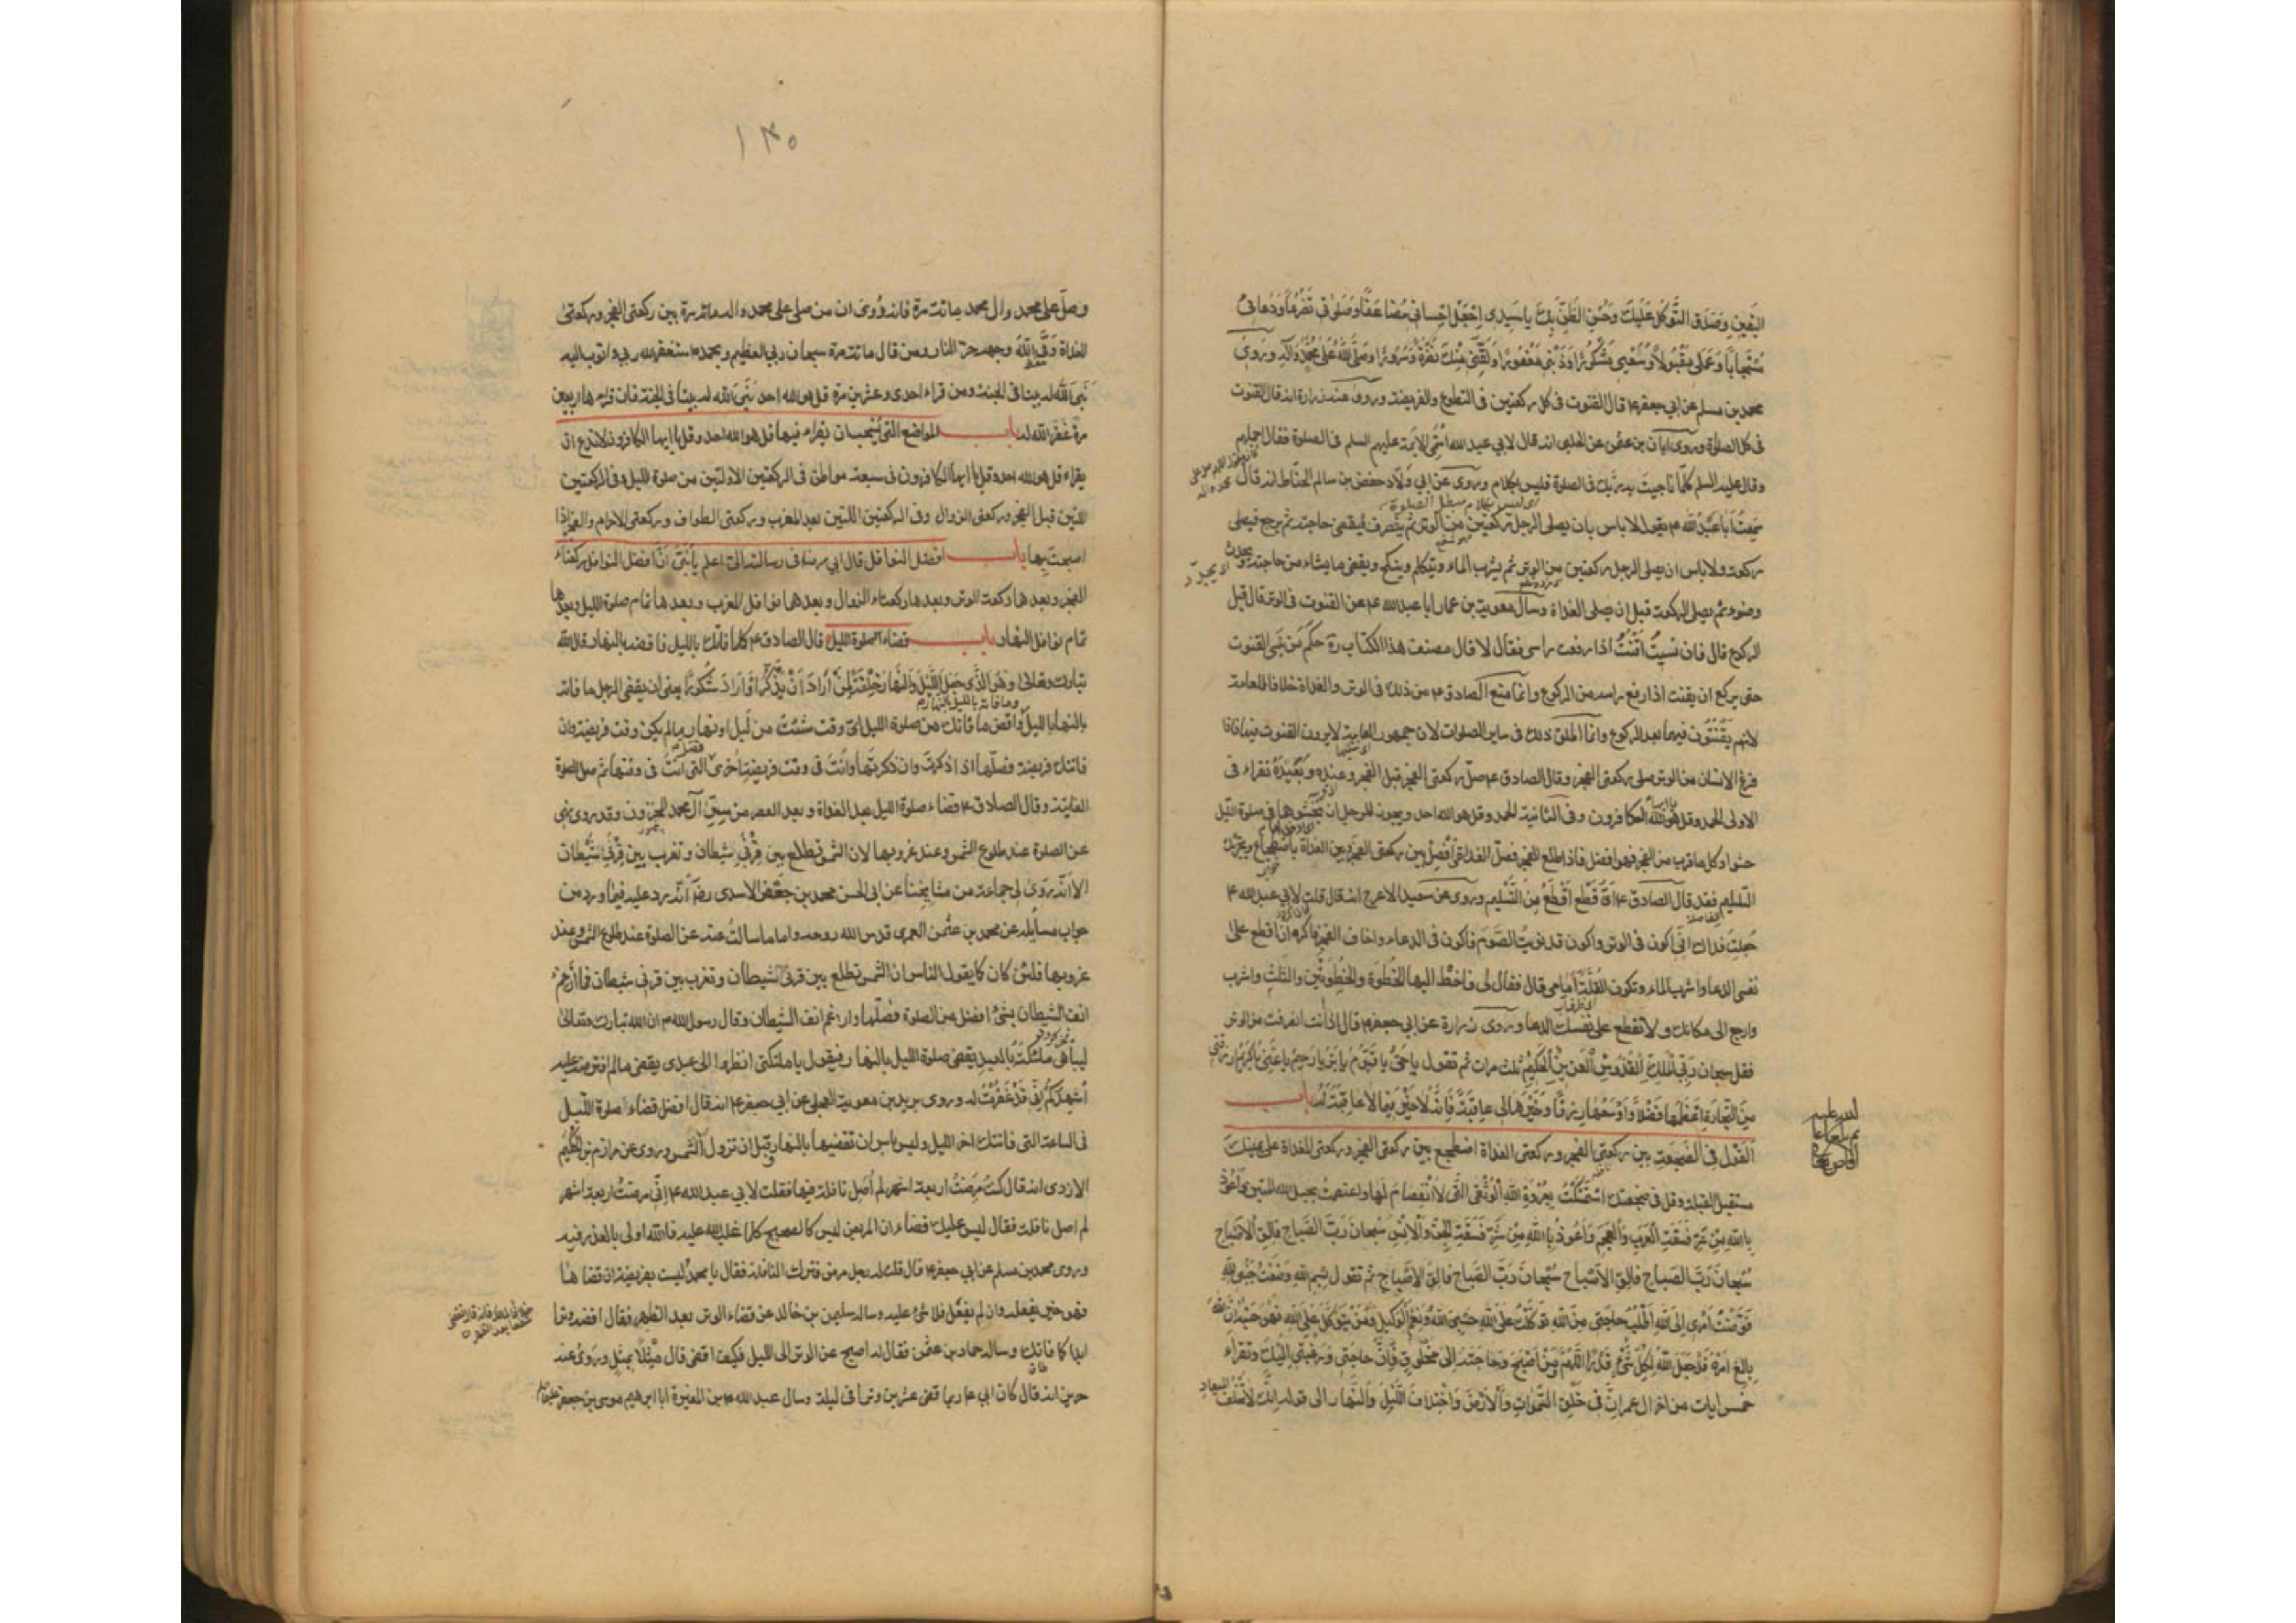 اليقين وصدق التوكل عليك وحسن الظن بك يا سيدي اجعل احساني مضاعفا وصلوتي تضرعا ودعائي
مستجابا وعملي مقبولا وسعيي مشكورا وذنبي مغفورا ولقني منك نضرة وسرورا وصلى الله على محمد وآله وروى
محمد بن مسلم عن ابي جعفر ع قال القنوت في كل ركعتين في التطوع والفريضة وروى عنه زرارة انه قال القنوت
في كل الصلوة وروى ابان بن عثمن عن الحلبي انه قال لابي عبد الله اسمي الائمة عليهم السلم في الصلوة فقال اجملهم
وقال عليه السلم كلما ناجيت به ربك في الصلوة فليس بكلام وروى عن ابي ولاد حفص بن سالم الحناط انه قال
سمعت ابا عبد الله ع يقول لا باس بان يصلي الرجل ركعتين من الوتر ثم ينصرف فيقضي حاجته ثم يرجع فيصلي
ركعة ولا باس ان يصلي الرجل ركعتين من الوتر ثم يشرب الماء ويتكلم وينكح ويقضي ما يشاء من حاجته
وضوءه ثم يصلي الركعة قبل ان يصلي الغداة وسال معوية بن عمار ابا عبد الله ع عن القنوت في الوتر قال قبل
الركوع قال فان نسيت اقنت اذا رفعت راسي فقال لا قال مصنف هذا الكتاب ره حكم من نسي القنوت
حتى يركع ان يقنت اذا رفع راسه من الركوع وانما منع الصادق ع من ذلك في الوتر والغداة خلافا للعامة
لانهم يقنتون فيهما بعد الركوع وانما اطلق ذلك في ساير الصلوات لان جمهور العامة لا يرون القنوت فيها فاذا
فرغ الانسان من الوتر صلى ركعتي الفجر وقال الصادق ع صل ركعتي الفجر قبل الفجر وعنده وبعيده تقراء في
الاولى الحمد وقل يا ايها الكافرون وفي الثانية الحمد وقل هو الله احد ويجوز للرجل ان يحشوهما في صلوة الليل
حشوا وكل ما قرب من الفجر فهو افضل فاذا طلع الفجر فصل الغداة وافصل بين ركعتي الفجر وبين الغداة باضطجاع ويجزيك
التسليم فقد قال الصادق ع اي قطع اقطع من التسليم وروى عن سعيد الاعرج انه قال قلت لابي عبد الله ع
جعلت فداك اني اكون في الوتر واكون قد نويت الصوم فاكون في الدعاء واخاف الفجر فاكره ان اقطع على
نفسي الدعا واشرب الماء وتكون القلة امامي قال فقال لي فاخط اليها الخطوة والخطوتين والثلث واشرب
وارجع الى مكانك ولا تقطع على نفسك الدعا وروى زرارة عن ابي جعفر ع قال اذا انت انصرفت من الوتر
فقل سبحان ربي الملك القدوس العزيز الحكيم ثلث مرات ثم تقول يا حي يا قيوم يا بر يا رحيم يا غني يا كريم ارزقني
من التجارة اعظمها فضلا واوسعها رزقا وخيرها لي عاقبة فانه لا خير فيما لا عاقبة له باب
القول في الضجعة بين ركعتي الفجر وركعتي الغداة اضطجع بين ركعتي الفجر وركعتي الغداة على يمينك
مستقبل القبلة وقل في ضجعتك استمسكت بعروة الله الوثقى التي لا انفصام لها واعتصمت بحبل الله المتين واعوذ
بالله من شر فسقة العرب والعجم واعوذ بالله من شر فسقة الجن والانس سبحان رب الصباح فالق الاصباح
سبحان رب الصباح فالق الاصباح سبحان رب الصباح فالق الاصباح ثم تقول بسم الله وضعت جنبي لله
فوضت امري الى الله اطلب حاجتي من الله توكلت على الله حسبي الله ونعم الوكيل ومن يتوكل على الله فهو حسبه ان الله
بالغ امره قد جعل الله لكل شيء قدرا اللهم ومن اصبح وحاجته الى مخلوق فان حاجتي ورغبتي اليك وتقراء
خمس ايات من اخر ال عمران في خلق السموات والارض واختلاف الليل والنهار الى قوله انك لا تخلف الميعاد
١٣٥
وصل على محمد وال محمد مائة مرة فانه روى ان من صلى على محمد واله مائة مرة بين ركعتي الفجر وركعتي
الغداة وقى الله وجهه حر النار ومن قال مائة مرة سبحان ربي العظيم وبحمده استغفر الله ربي واتوب اليه
بنى الله له بيتا في الجنة ومن قراء احدى وعشرين مرة قل هو الله احد بنى الله له بيتا في الجنة فان قراءها اربعين
مرة غفر الله له باب المواضع التي يستحب ان يقراء فيها قل هو الله احد وقل يا ايها الكافرون لا تدع ان
يقراء قل هو الله احد وقل يا ايها الكافرون في سبعة مواطن في الركعتين الاولتين من صلوة الليل وفي الركعتين
اللتين قبل الفجر وركعتي الزوال وفي الركعتين اللتين بعد المغرب وركعتي الطواف وركعتي الاحرام والفجر اذا
اصبحت بها باب افضل النوافل قال ابي رض في رسالته الي اعلم يا بني ان افضل النوافل ركعتاء
الفجر وبعدها ركعة الوتر وبعدها ركعتاء الزوال وبعدهما نوافل المغرب وبعدها تمام صلوة الليل وبعدها
تمام نوافل النهار باب قضاء صلوة الليل قال الصادق ع كلما فاتك بالليل فاقضه بالنهار قال الله
تبارك وتعالى وهو الذي جعل الليل والنهار خلفة لمن اراد ان يذكر او اراد شكورا يعني ان يقضي الرجل ما فاته
بالنهار بالليل واقض ما فاتك من صلوة الليل اي وقت شئت من ليل او نهار ما لم يكن وقت فريضة وان
فاتتك فريضة فصلها اذا ذكرت وان ذكرتها وانت في وقت فريضة اخرى فصل التي انت في وقتها ثم صل الصلوة
الفايتة وقال الصادق ع قضاء صلوة الليل بعد الغداة وبعد العصر من سر آل محمد المخزون وقد روى نهي
عن الصلوة عند طلوع الشمس وعند غروبها لان الشمس تطلع بين قرني شيطان وتغرب بين قرني شيطان
الا انه روى لي جماعة من مشايخنا عن ابي الحسين محمد بن جعفر الاسدي رض انه ورد عليه فيما ورد من
جواب مسايله عن محمد بن عثمن العمري قدس الله روحه واما ما سالت عنه عن الصلوة عند طلوع الشمس وعند
غروبها فلئن كان كما يقول الناس ان الشمس تطلع بين قرني شيطان وتغرب بين قرني شيطان فما ارغم
انف الشيطان بشيء افضل من الصلوة فصلها وارغم انف الشيطان وقال رسول الله ص ان الله تبارك وتعالى
ليباهي ملئكته بالعبد يقضي صلوة الليل بالنهار فيقول يا ملئكتي انظروا الى عبدي يقضي ما لم افترضه عليه
اشهدكم اني قد غفرت له وروى بريد بن معوية العجلي عن ابي جعفر ع انه قال افضل قضاء صلوة الليل
في الساعة التي فاتتك اخر الليل وليس باس ان تقضيها بالنهار وقبل ان تزول الشمس وروى عن مرازم بن حكيم
الازدي انه قال كنت مرضت اربعة اشهر لم اصل نافلة فيها فقلت لابي عبد الله ع اني مرضت اربعة اشهر
لم اصل نافلة فقال ليس عليك قضاء ان المريض ليس كالصحيح كلما غلب الله عليه فالله اولى بالعذر فيه
وروى محمد بن مسلم عن ابي جعفر ع قال قلت له رجل مرض فترك النافلة فقال يا محمد ليست بفريضة ان قضاها
فهو خير يفعله وان لم يفعل فلا شيء عليه وساله سليمن بن خالد عن قضاء الوتر بعد الظهر فقال اقضه وترا
ابدا كما فاتك وساله حماد بن عثمن فقال له اصبح عن الوتر الى الليل فكيف اقضي قال مثلا بمثل وروى عنه
حريز انه قال كان ابي ع ربما قضى عشرين وترا في ليلة وسال عبد الله بن المغيرة ابا ابرهيم موسى بن جعفر